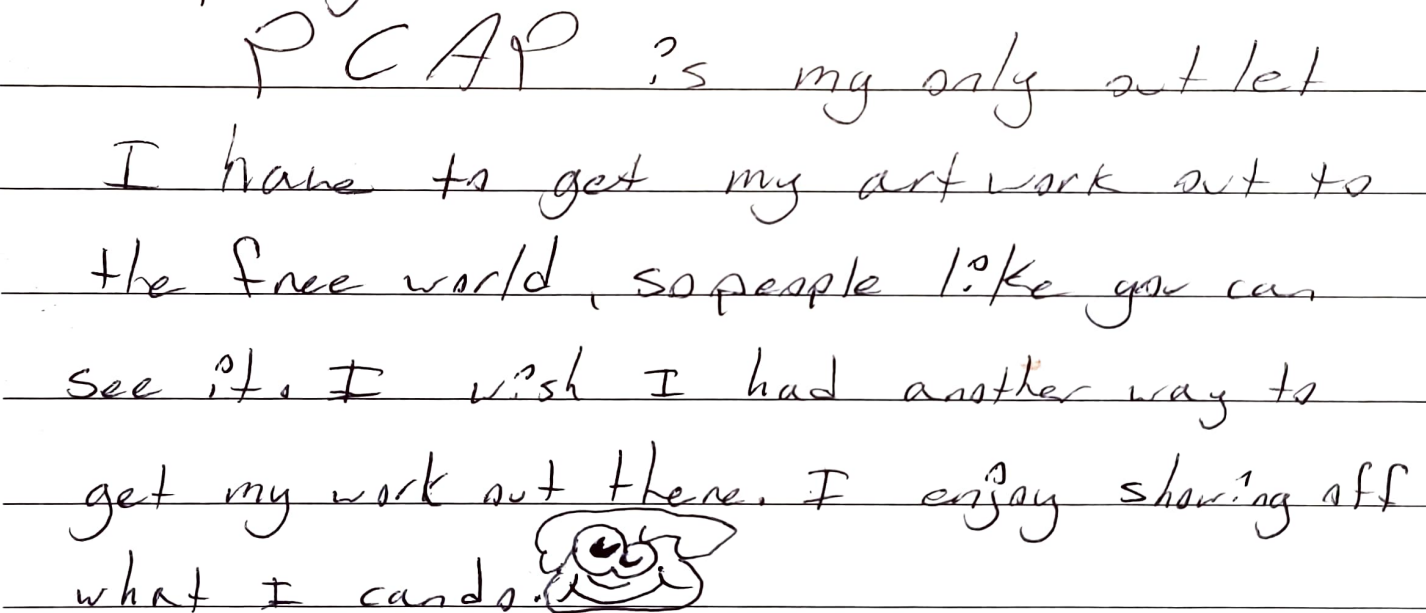 PCAP is my only outlet
I have to get my artwork out to
the free world, so people like you can
see it. I wish I had another way to
get my work out there. I enjoy showing off
what I can do.